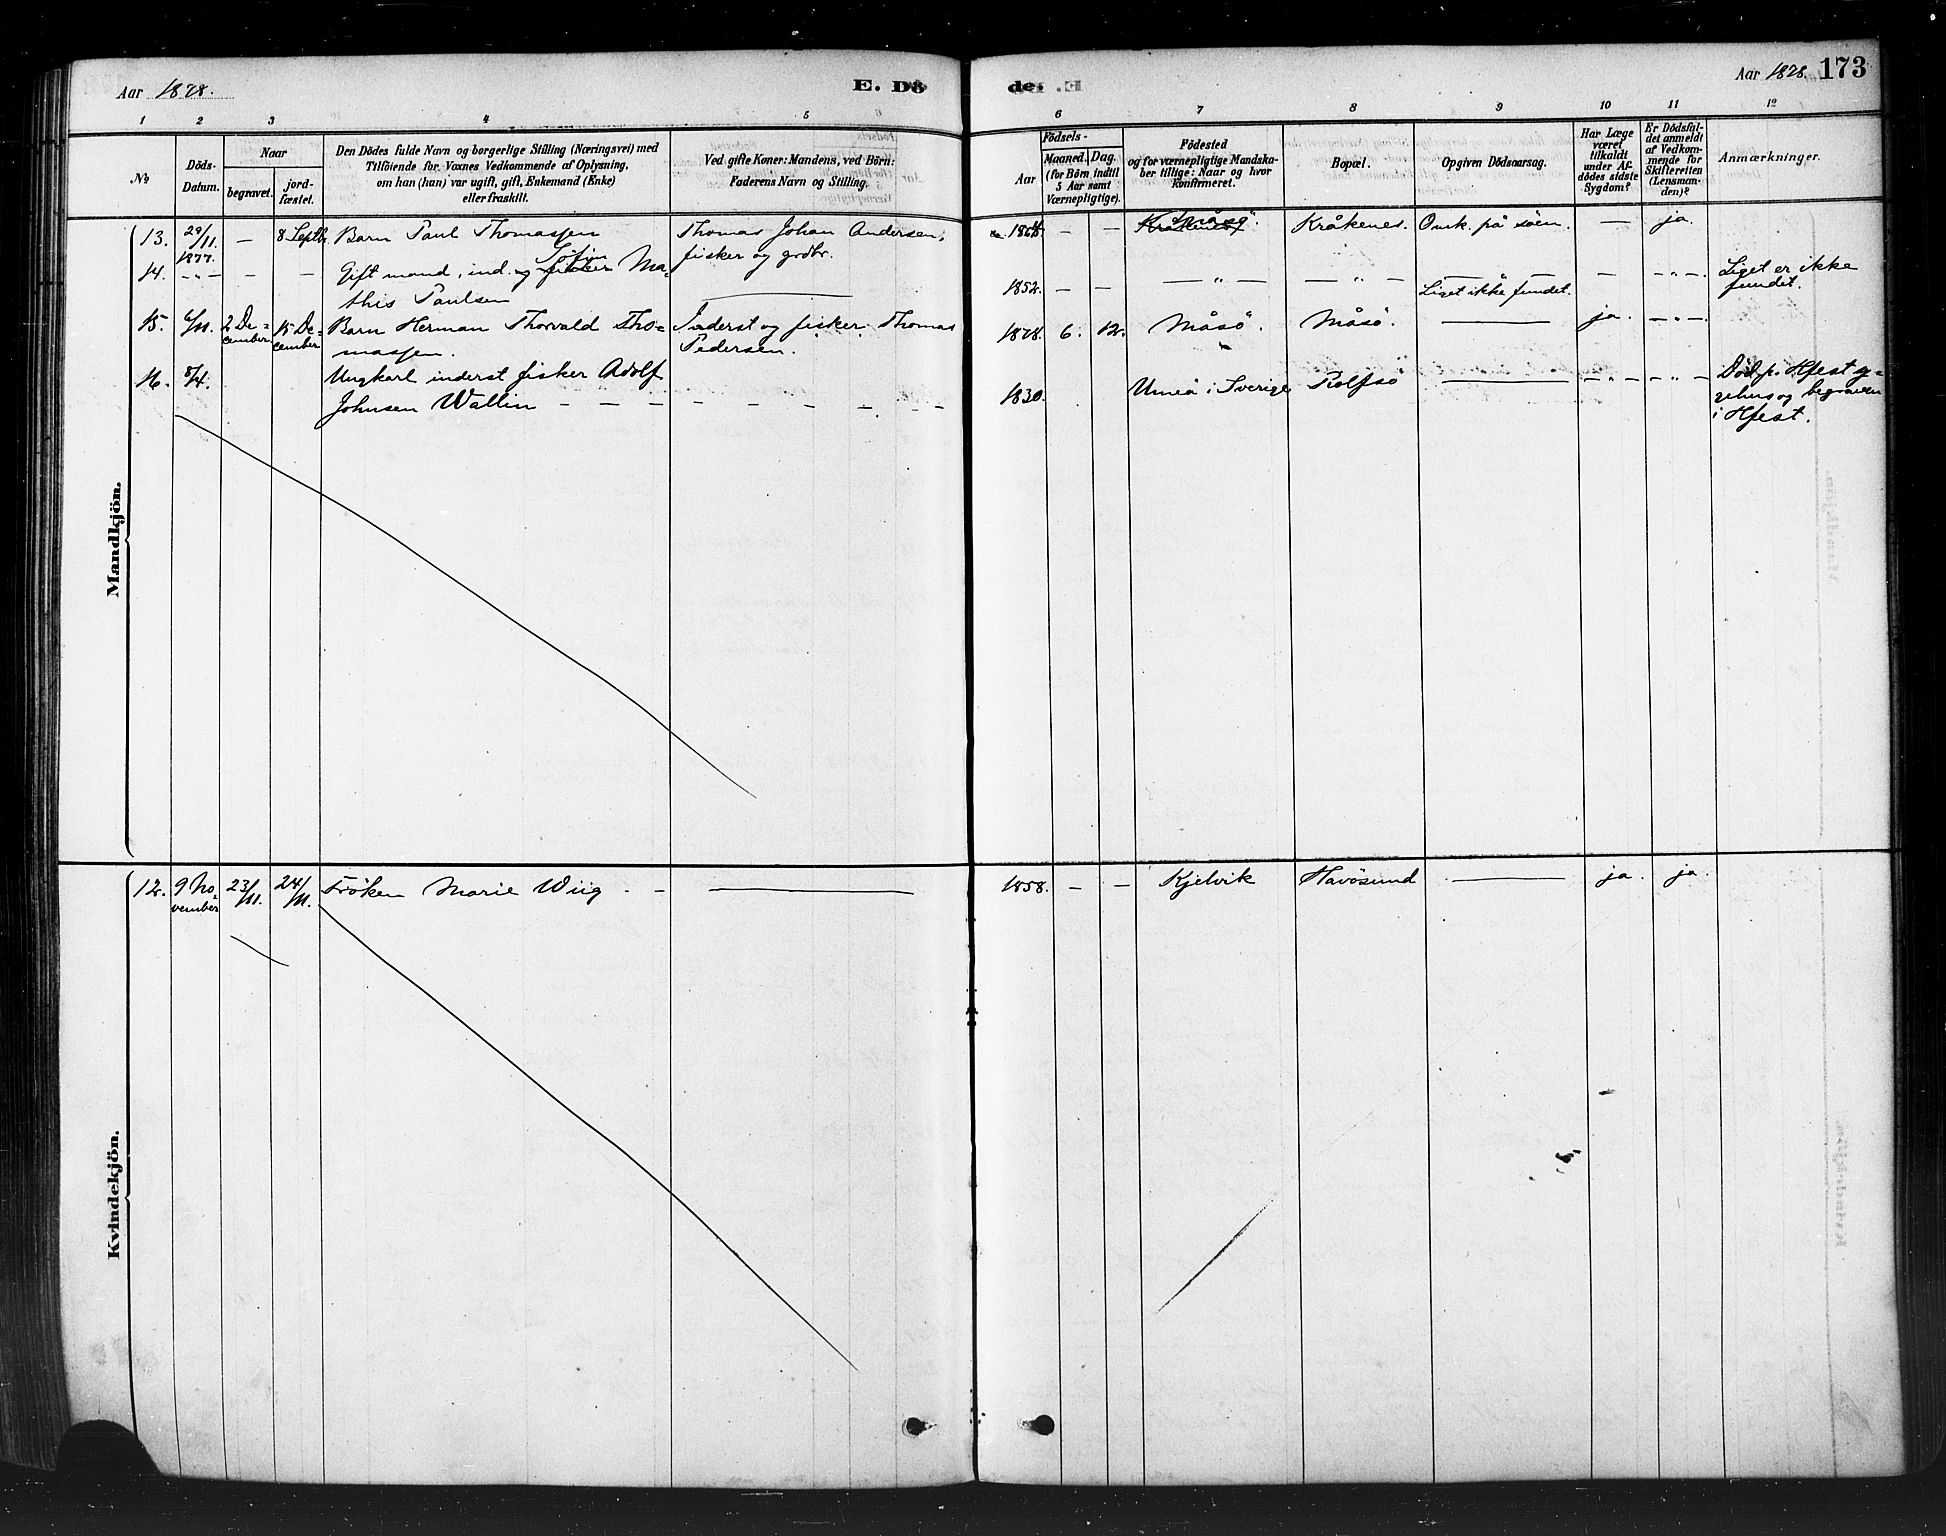 Aar 1878.
E. Dö
de.
Aar 1878. 173
1 2 3 4 5 6 7 8 9 10 11 12
No
Döds-
Datum.
Naar
begravet.
jord-
fæstet.
Den Dödes fulde Navn og borgerlige Stilling (Næringsvei) med
Tilföiende for Voxnes Vedkommende af Oplysning,
om han (hun) var ugift, gift, Enkemand (Enke)
eller fraskilt.
Ved gifte Koner: Mandens, ved Börn:
Faderens Navn og Stilling.
Födsels-
Aar
Maaned. Dag.
(for Börn indtil
5 Aar samt
Værnepligtige).
Födested
og for værnepligtige Mandska-
ber tillige: Naar og hvor
konfirmeret.
Bopæl.
Opgiven Dödsaarsag.
Har Læge
været
tilkaldt
under Af-
dödes sidste
Sygdom?
Er Dödsfal-
det anmeldt
af Vedkom-
mende for
Skifteretten
(Lensman-
den)?
Anmærkninger.
Mandkjön.
13. 29/11. 1877. — 8 Septb. Barn Paul Thomassen
Thomas Johan Andersen,
fisker og grdbr.
1864. — — Kråkenes Måsö. Kråkenes. Omk. på söen. — ja.
14. — " — — — Gift mand, ind. og fisker Ma-
this Paulsen
1852. — — — " — — " — Liget ikke fundet. — — " —. Liget er ikke
fundet.
15. 6/11. 2 De-
cember. 15 De-
cember Barn Herman Thorvald Tho-
massen.
Inderst og fisker Thomas
Pedersen.
1878. 6. 12. Måsö. Måsö. — ja. — " —.
16. 8/4. Ungkarl inderst fisker Adolf
Johnsen Wallin — — — — — — — —
1830. Umeå i Sverige Rolfsö — — " — — " — Död p. Hfest
og begraven
i Hfest.
Kvindekjön.
12. 9 No-
vember 23/11. 24/11. Fröken Marie Wiig. — —
1858. — — Kjelvik Havösund — ja. ja.